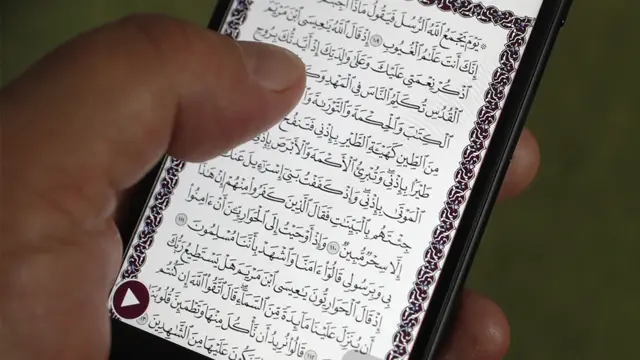 يَوْمَ يَجْمَعُ ٱللَّهُ ٱلرُّسُلَ فَيَقُولُ مَاذَآ
إِنَّكَ أَنتَ عَلَّـٰمُ ٱلْغُيُوبِ ١٠٩ إِذْ قَالَ ٱللَّهُ يَـٰعِيسَى ٱبْنَ مَرْيَمَ
ٱذْكُرْ نِعْمَتِى عَلَيْكَ وَعَلَىٰ وَٰلِدَتِكَ إِذْ أَيَّدتُّكَ بِرُوحِ
ٱلْقُدُسِ تُكَلِّمُ ٱلنَّاسَ فِى ٱلْمَهْدِ
ٱلْكِتَـٰبَ وَٱلْحِكْمَةَ وَٱلتَّوْرَىٰةَ
مِنَ ٱلطِّينِ كَهَيْـَٔةِ ٱلطَّيْرِ بِإِذْنِى فَتَنفُخُ
طَيْرًۢا بِإِذْنِى وَتُبْرِئُ ٱلْأَكْمَهَ وَٱلْأَبْرَصَ
ٱلْمَوْتَىٰ بِإِذْنِى وَإِذْ كَفَفْتُ بَنِىٓ إِسْرَٰٓءِيلَ عَنكَ
جِئْتَهُم بِٱلْبَيِّنَـٰتِ فَقَالَ ٱلَّذِينَ كَفَرُوا۟ مِنْهُمْ إِنْ هَـٰذَآ
إِلَّا سِحْرٌ مُّبِينٌ ١١٠ وَإِذْ أَوْحَيْتُ إِلَى ٱلْحَوَارِيِّـۧنَ أَنْ ءَامِنُوا۟
بِى وَبِرَسُولِى قَالُوٓا۟ ءَامَنَّا وَٱشْهَدْ بِأَنَّنَا مُسْلِمُونَ ١١١
إِذْ قَالَ ٱلْحَوَارِيُّونَ يَـٰعِيسَى ٱبْنَ مَرْيَمَ هَلْ يَسْتَطِيعُ رَبُّكَ
أَن يُنَزِّلَ عَلَيْنَا مَآئِدَةً مِّنَ ٱلسَّمَآءِ قَالَ ٱتَّقُوا۟ ٱللَّهَ إِن كُنتُم
١١٢ قَالُوا۟ نُرِيدُ أَن نَّأْكُلَ مِنْهَا وَتَطْمَئِنَّ قُلُوبُنَا
وَنَكُونَ عَلَيْهَا مِنَ ٱلشَّـٰهِدِينَ ١١٣